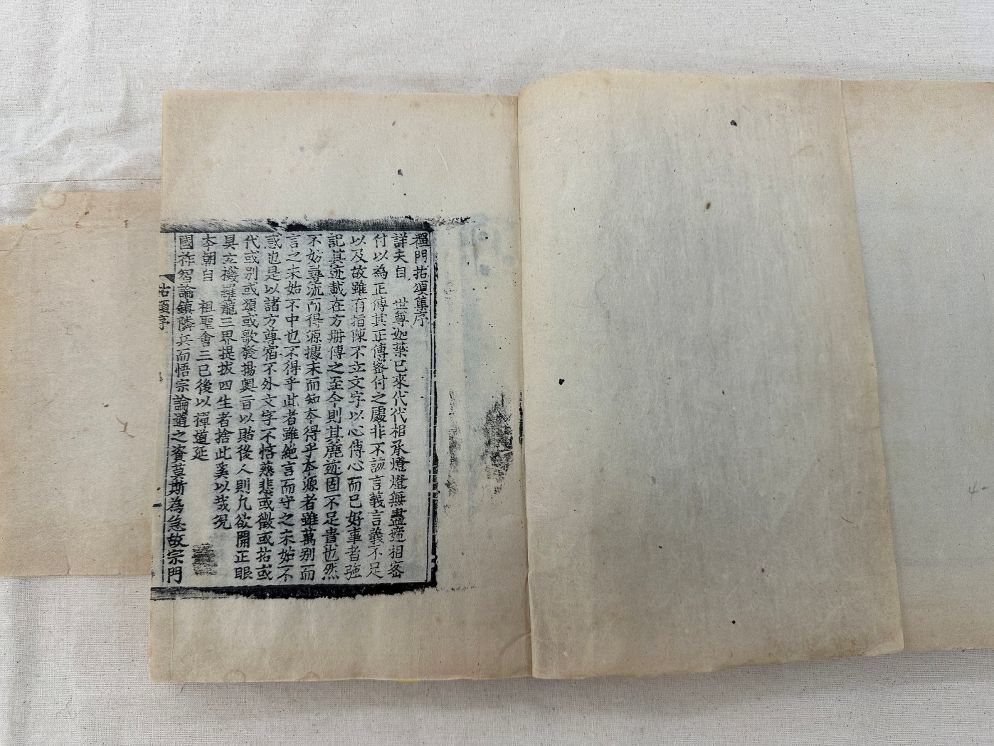 禪門拈頌集序
詳夫自 世尊迦葉已來代代相承燈燈無盡遞相密
付以為正傳其正傳密付之處非不該言義言義不足
以及故雖有指陳不立文字以心傳心而已好事者强
記其迹載在方册傳之至今則其麁迹固不足貴也然
不妨尋流而得源據末而知本得乎本源者雖萬别而
言之未始不中也不得乎此者雖絶言而守之未始不
惑也是以諸方尊宿不外文字不悋慈悲或徵或拈或
代或别或頌或歌發揚奥旨以貽後人則凡欲開正眼
具玄機羅籠三界提拔四生者捨此奚以哉况
本朝自 祖聖會三已後以禪道延
國祚智論鎮隣兵而悟宗論道之資莫斯為急故宗門
拈頌序